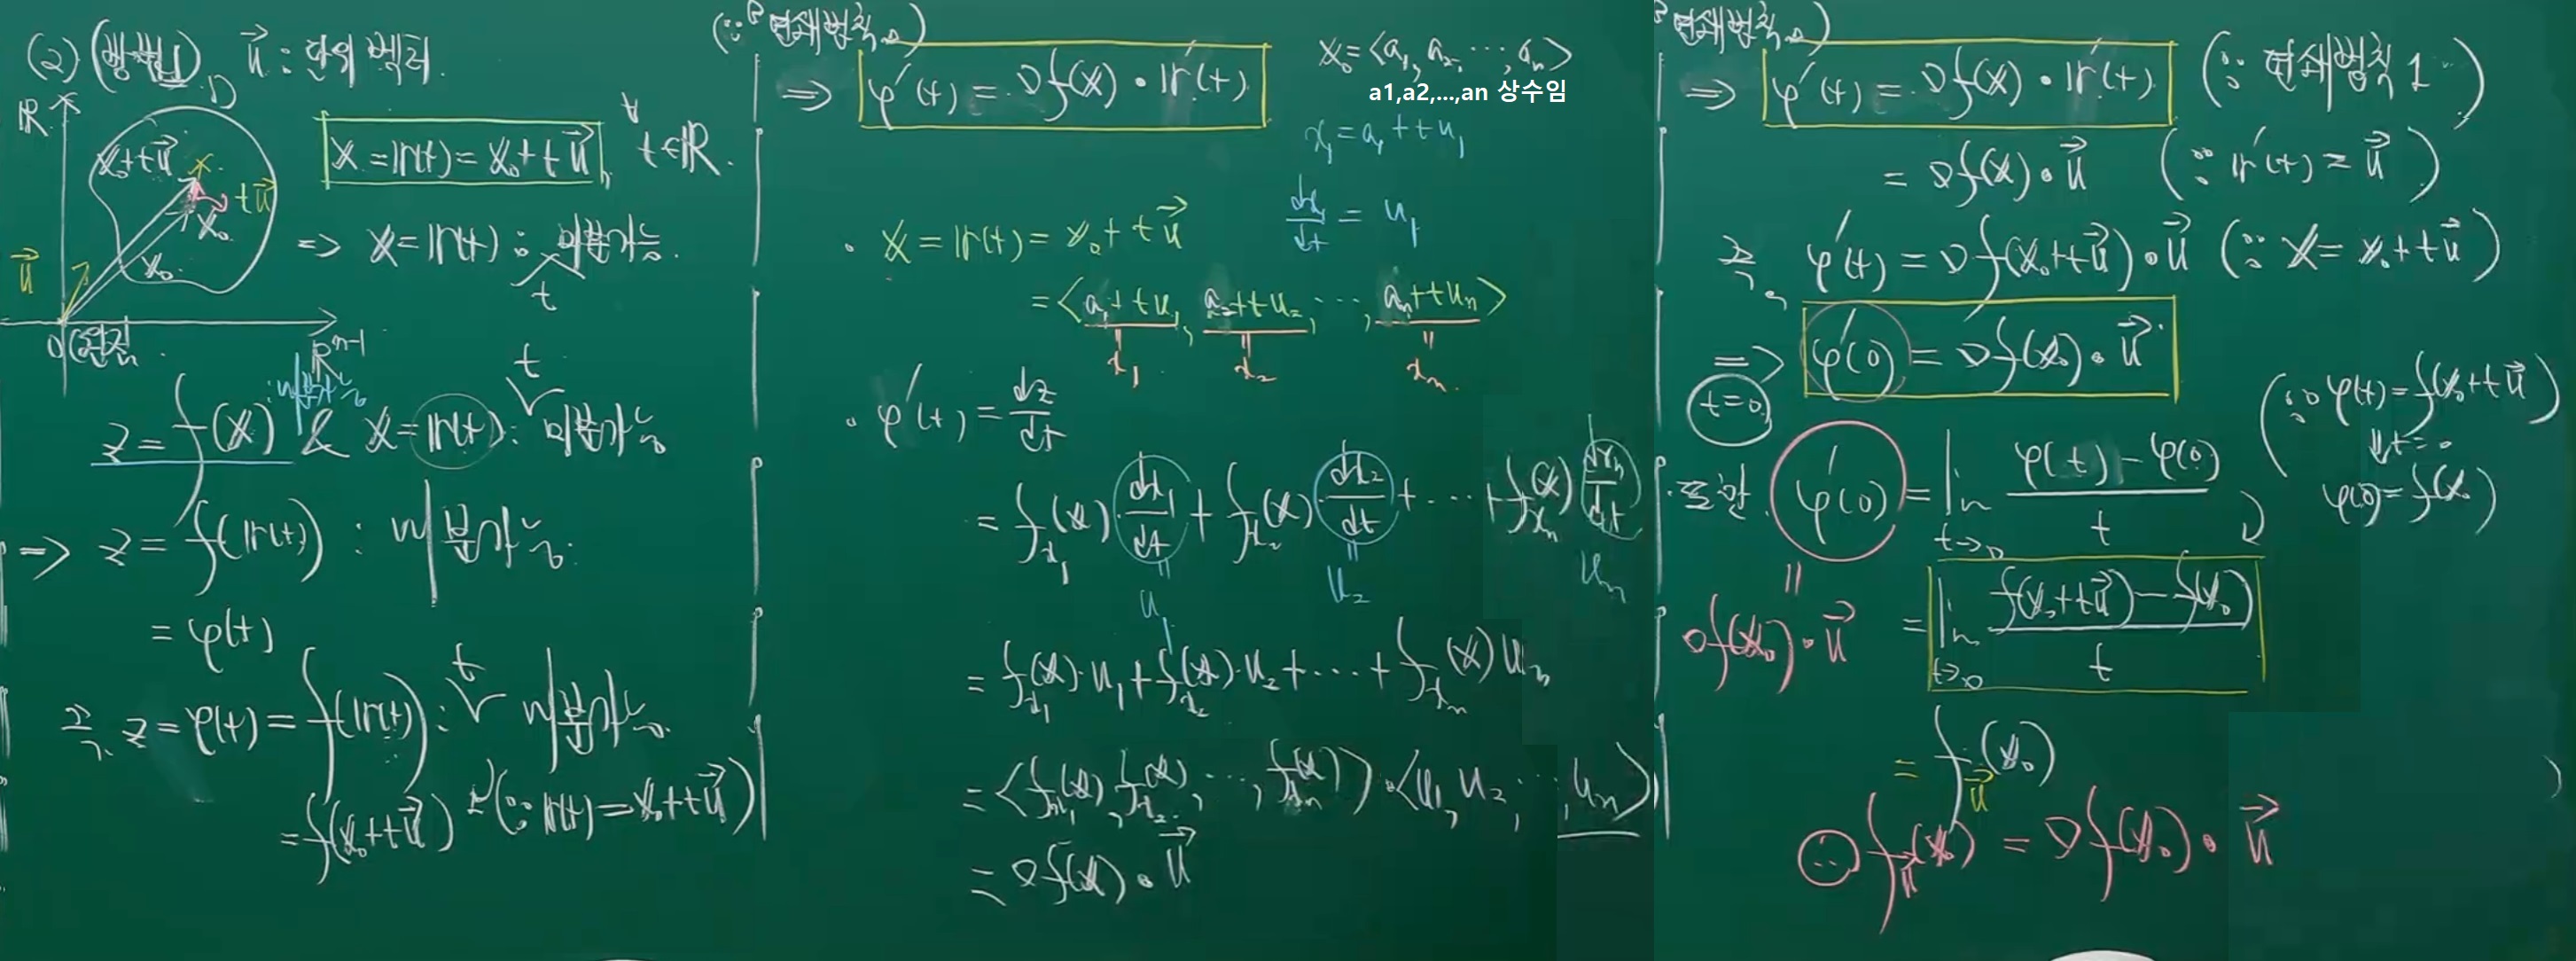 (2) (방법1) u⃗ : 단위벡터.
ℝ D
x₀+tu⃗ x tu⃗
x₀
x₀
u⃗
O(원점) ℝⁿ⁻¹
x = 𝕣(t) = x₀+tu⃗, ∀t∈ℝ.
=> x = 𝕣(t) : 미분가능.
t
z = f(x) : 미분가능 & x = 𝕣(t) : t 미분가능
=> z = f(𝕣(t)) : 미분가능.
= φ(t)
즉, z = φ(t) = f(𝕣(t)) : t 미분가능.
= f(x₀+tu⃗) (∵ 𝕣(t) = x₀+tu⃗)
(∵ 연쇄법칙)
=> φ′(t) = ∇f(x)•𝕣′(t)
x₀ = <a₁, a₂, ⋯, aₙ>
a1,a2,...,an 상수임
x₁ = a₁+tu₁
dx₁/dt = u₁
• x = 𝕣(t) = x₀+tu⃗
= <a₁+tu₁, a₂+tu₂, ⋯, aₙ+tuₙ>
= x₁ = x₂ = xₙ
• φ′(t) = dz/dt
= f_x₁(x)·dx₁/dt + f_x₂(x)·dx₂/dt + ⋯ + f_xₙ(x) dxₙ/dt
= u₁ = u₂ uₙ
= f_x₁(x)·u₁ + f_x₂(x)·u₂ + ⋯ + f_xₙ(x) uₙ
= <f_x₁(x), f_x₂(x), ⋯, f_xₙ(x)>·<u₁, u₂, ⋯, uₙ>
= ∇f(x)•u⃗
연쇄법칙)
=> φ′(t) = ∇f(x)•𝕣′(t) (∵ 연쇄법칙 1)
= ∇f(x)•u⃗ (∵ 𝕣′(t) = u⃗)
즉, φ′(t) = ∇f(x₀+tu⃗)•u⃗ (∵ x = x₀+tu⃗)
=> φ′(0) = ∇f(x₀)•u⃗
t=0
(∵ φ(t) = f(x₀+tu⃗)
⇓ t=0
φ(0) = f(x₀))
• 또한 φ′(0) = lim t→0 (φ(t) − φ(0))/t
= ∇f(x₀)•u⃗
= lim t→0 (f(x₀+tu⃗) − f(x₀))/t
= f_u⃗(x₀)
∴ f_u⃗(x₀) = ∇f(x₀)•u⃗